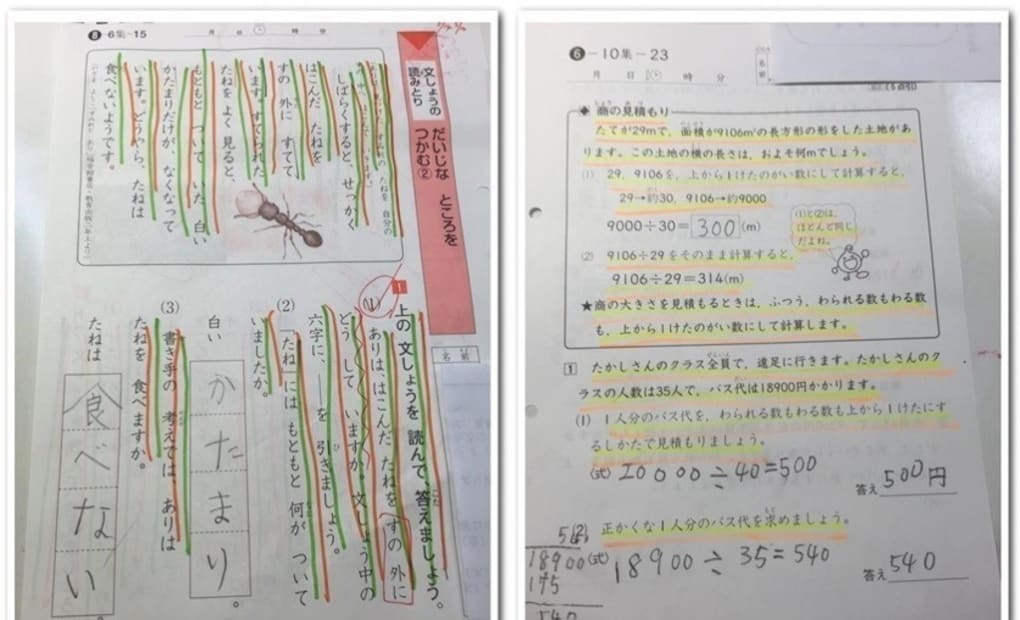 8-6集-15
月 日 時 分
文しょうの読みとり
だいじな ところを
つかむ②
しばらくすると、せっかく
はこんだ たねを
すの 外に すてて
います。すてられた
たねを よく 見ると、
もともと ついて いた 白い
かたまりだけが、なくなって
います。どうやら、たねは
食べないようです。
名前
1 上の 文しょうを 読んで、答えましょう。
(1) ありは、はこんだ たねを すの 外に
どう して いますか。文しょう中の
六字に、――を 引きましょう。
(2) 「たね」には もともと 何が ついて
いましたか。
白い かたまり。
(3) 書き手の 考えでは、ありは
たねを 食べますか。
たねは 食べない。
6-10集-23
月 日 時 分
名前
◆ 商の見積もり
たてが29mで、面積が9106m²の長方形の形をした土地があ
ります。この土地の横の長さは、およそ何mでしょう。
(1) 29、9106を、上から1けたのがい数にして計算すると、
29→約30、9106→約9000
9000÷30=300(m)
(1)と(2)は、
ほとんど同じ
だよね。
(2) 9106÷29をそのまま計算すると、
9106÷29=314(m)
★商の大きさを見積もるときは、ふつう、わられる数もわる数
も、上から1けたのがい数にして計算します。
1 たかしさんのクラス全員で、遠足に行きます。たかしさんのク
ラスの人数は35人で、バス代は18900円かかります。
(1) 1人分のバス代を、わられる数もわる数も上から1けたにす
るしかたで見積もりましょう。
(式) 20000÷40=500
答え 500円
(2) 正かくな1人分のバス代を求めましょう。
(式) 18900÷35=540
答え 540
18900
175
540